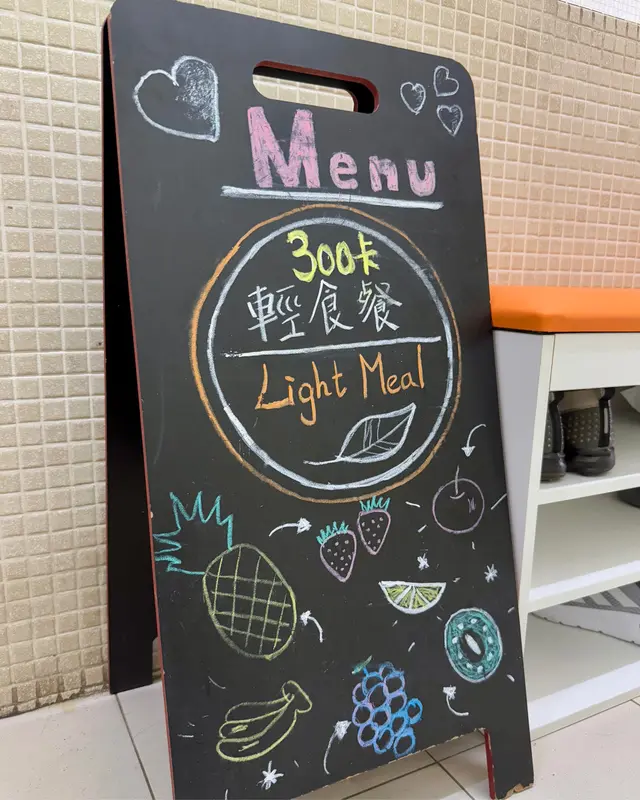 Menu
300卡
輕食餐
Light Meal